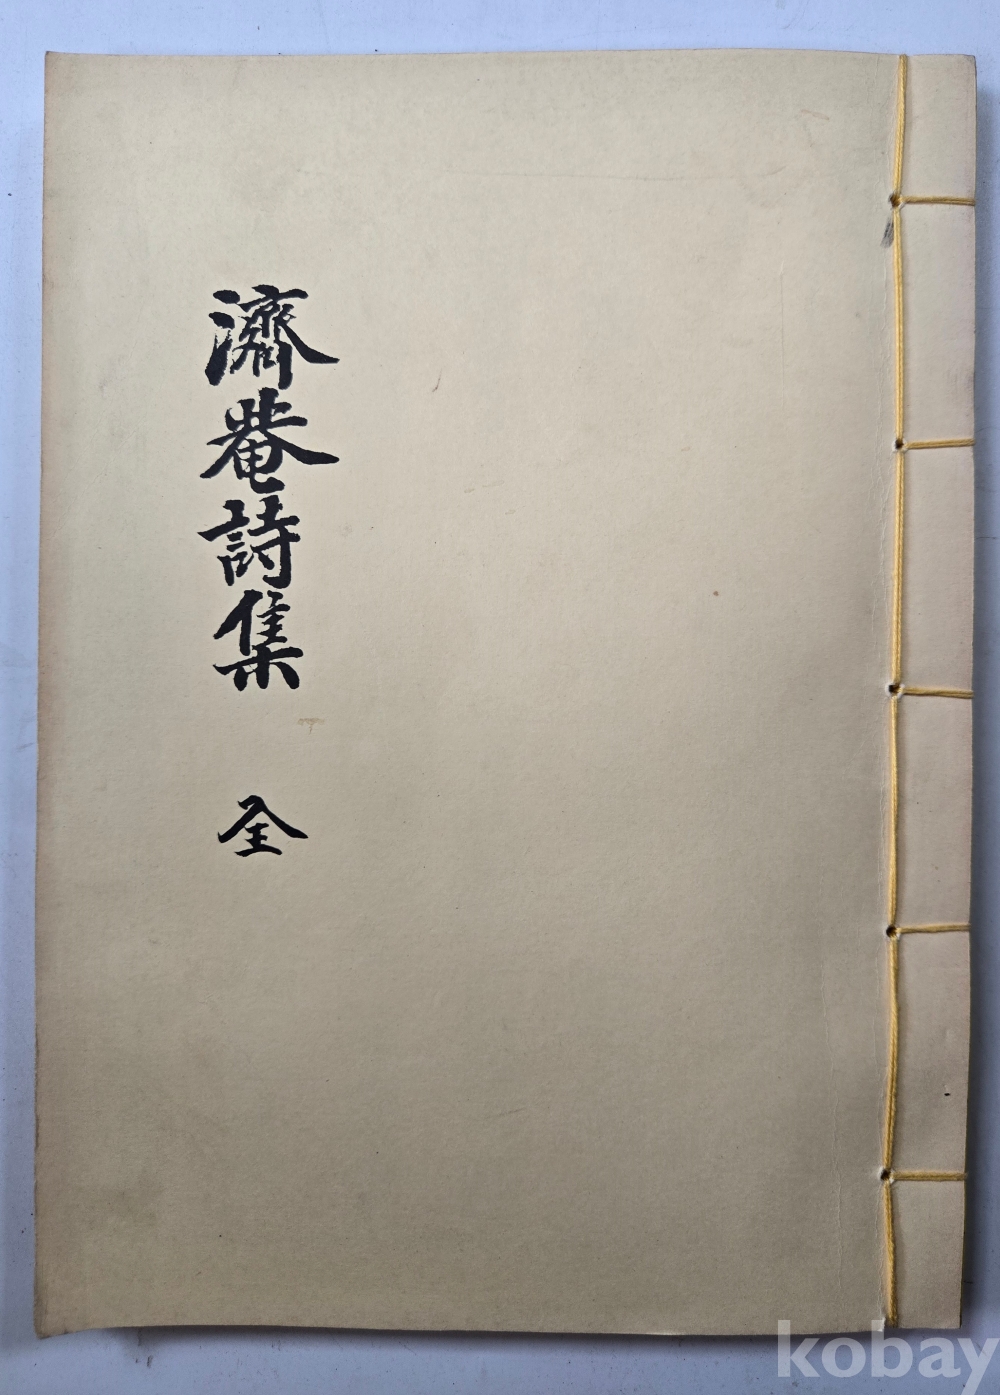 濟菴詩集 全
kobay